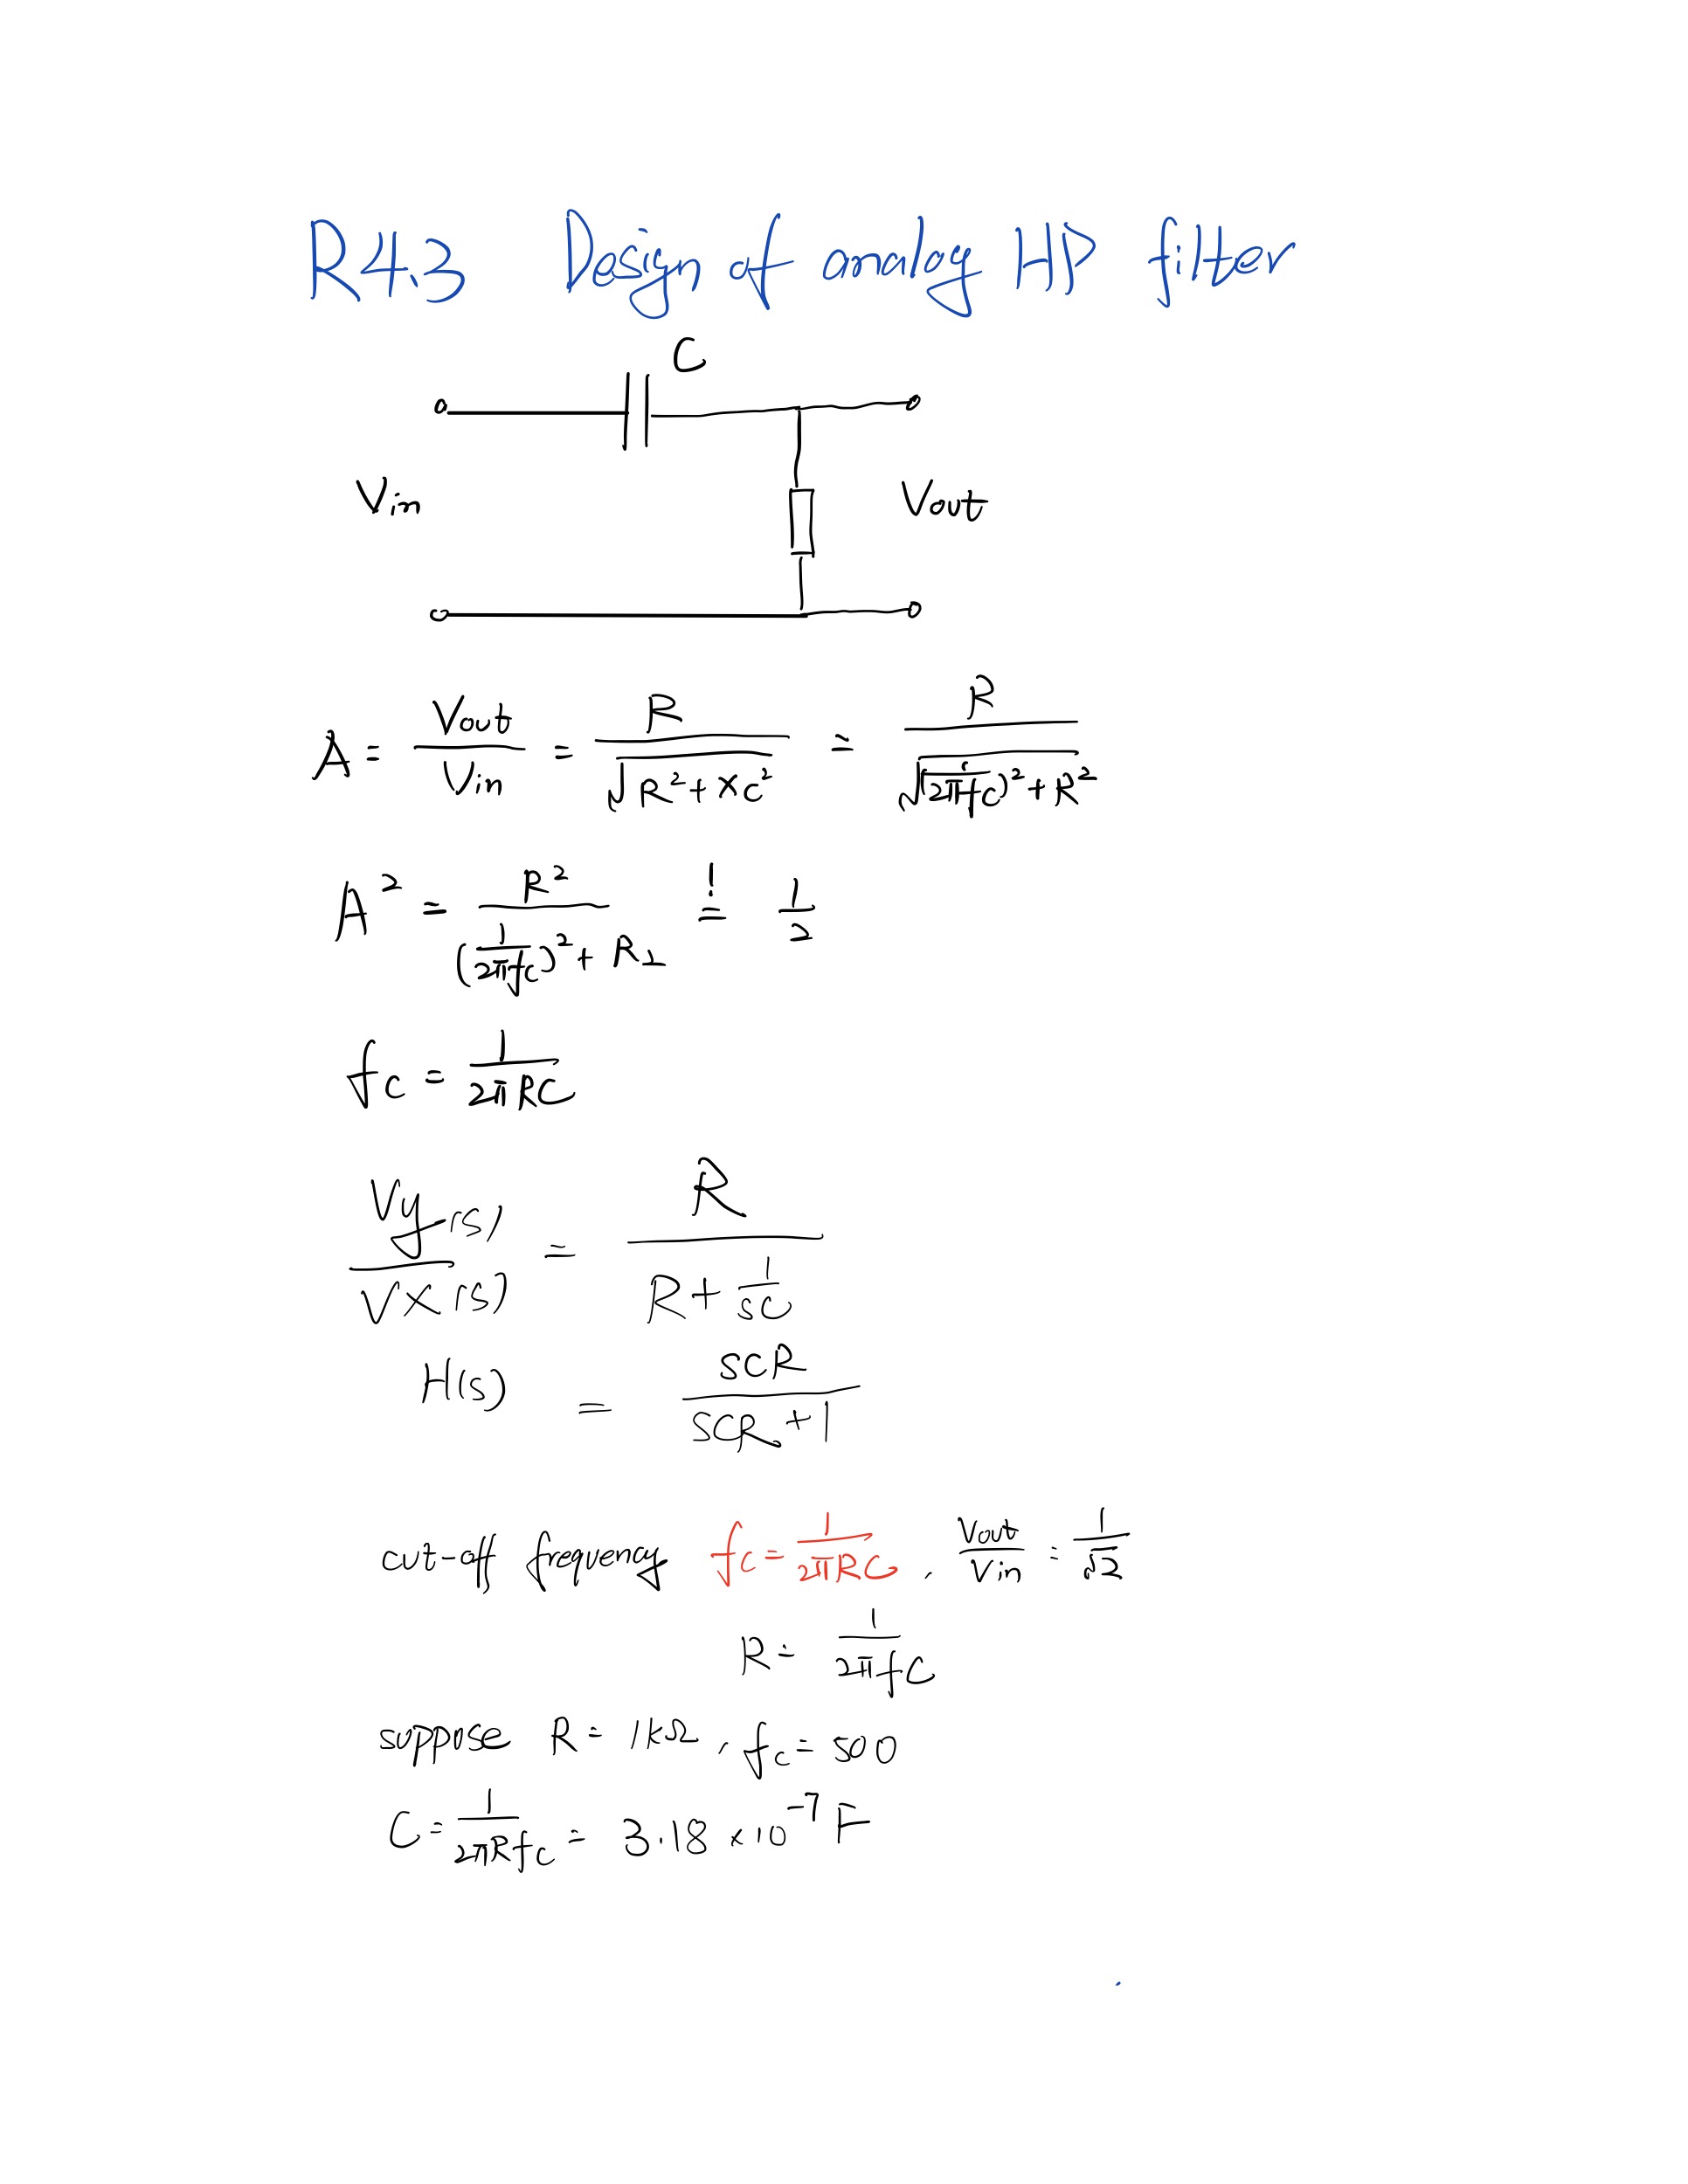 R4.3 Design of analog HP filter
C
Vin Vout
A = Vout/Vin = R/√(R²+XC²) = R/√((1/2πfC)²+R²)
A² = R²/((1/2πfC)²+R⊥) =! 1/2
fc = 1/2πRC
Vy(s)/VX(s) = R/(R+1/SC)
H(s) = SCR/(SCR+1)
cut-off frequency fc = 1/2πRC , Vout/Vin = 1/√2
R = 1/2πfC
suppose R = 1kΩ , fc = 500
C = 1/2πRfc = 3.18 ×10⁻⁷ F